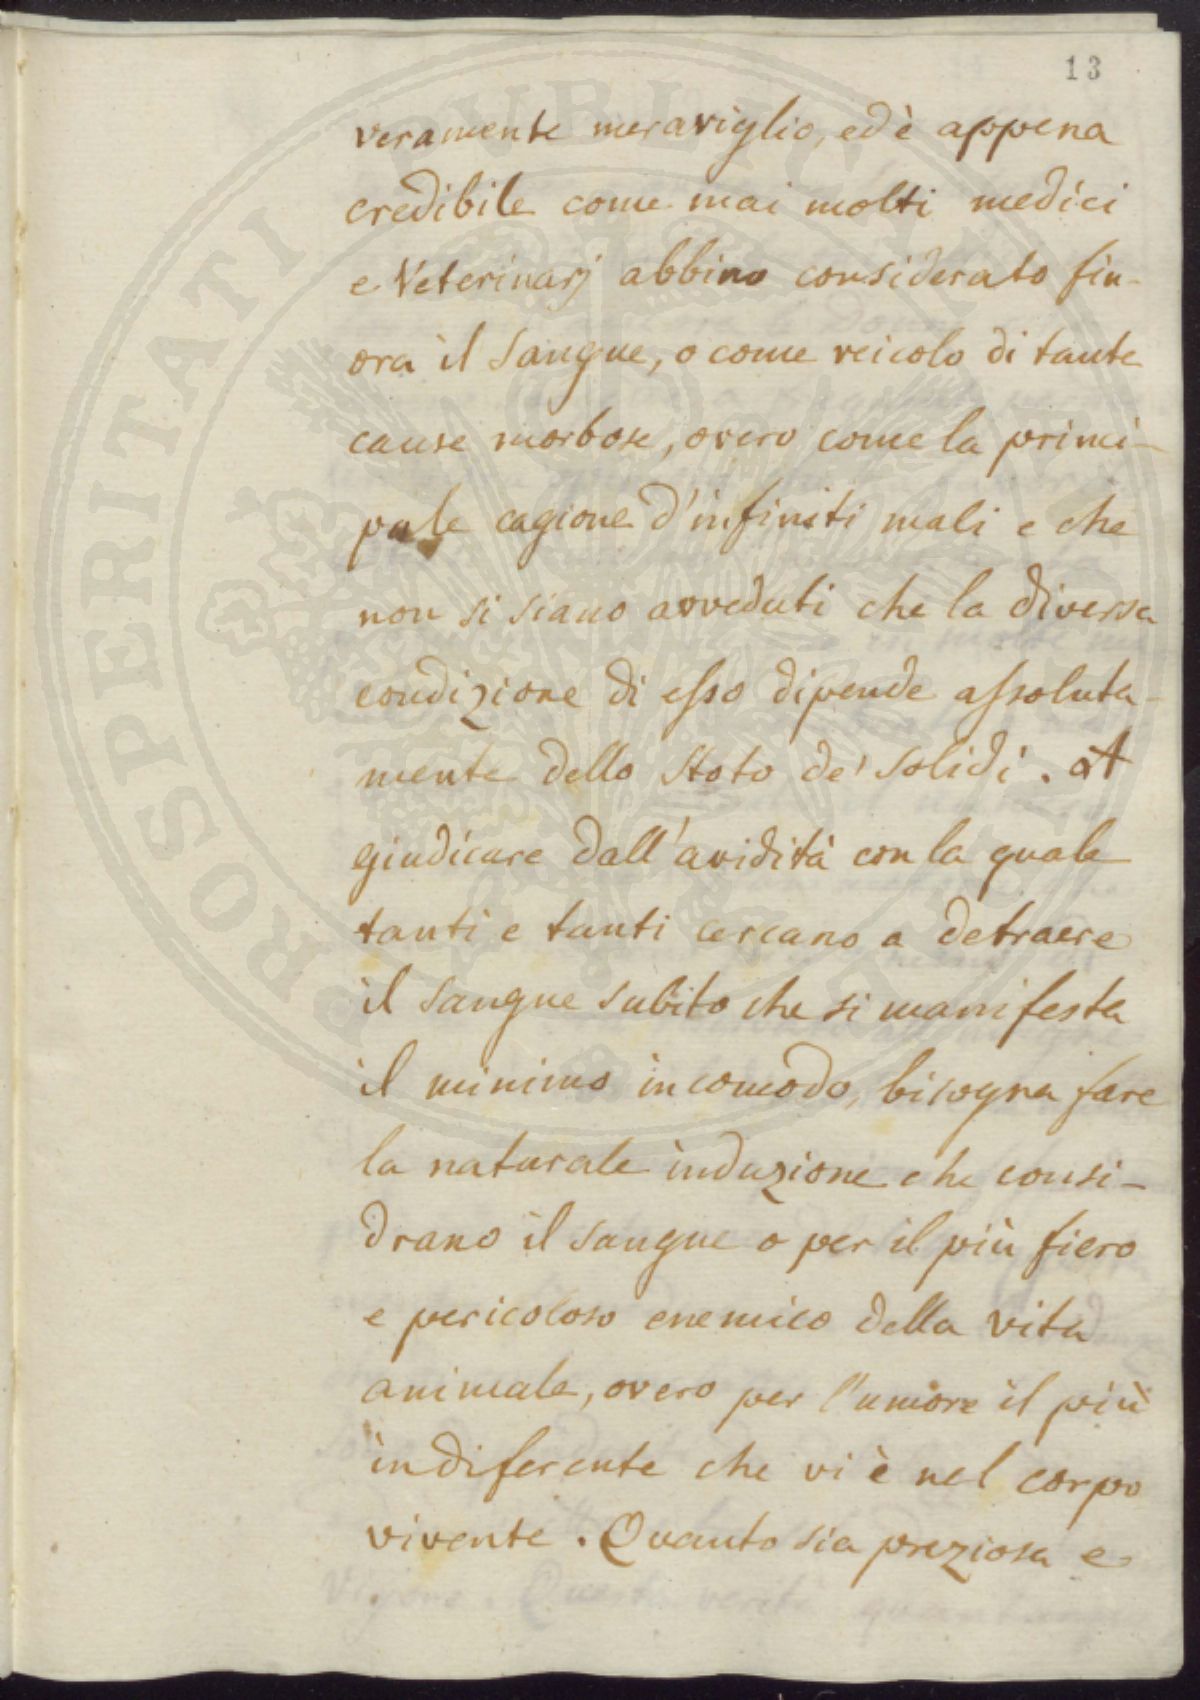 13
veramente meraviglio, ed è appena
credibile come mai molti medici
e Veterinarj abbino considerato fin-
ora il Sangue, o come veicolo di tante
cause morbose, overo come la princi-
pale cagione d'infiniti mali e che
non si siano avveduti che la diversa
condizione di esso dipende assoluta-
mente dello stato de' solidi. A
giudicare dall'avidità con la quale
tanti e tanti cercano a detraere
il sangue subito che si manifesta
il minimo incomodo, bisogna fare
la naturale induzione che consi-
drano il sangue o per il più fiero
e pericoloso enemico della vita
animale, overo per l'umore il più
indiferente che vi è nel corpo
vivente. Quanto sia preziosa e
PROSPERITATI PUBLICAE